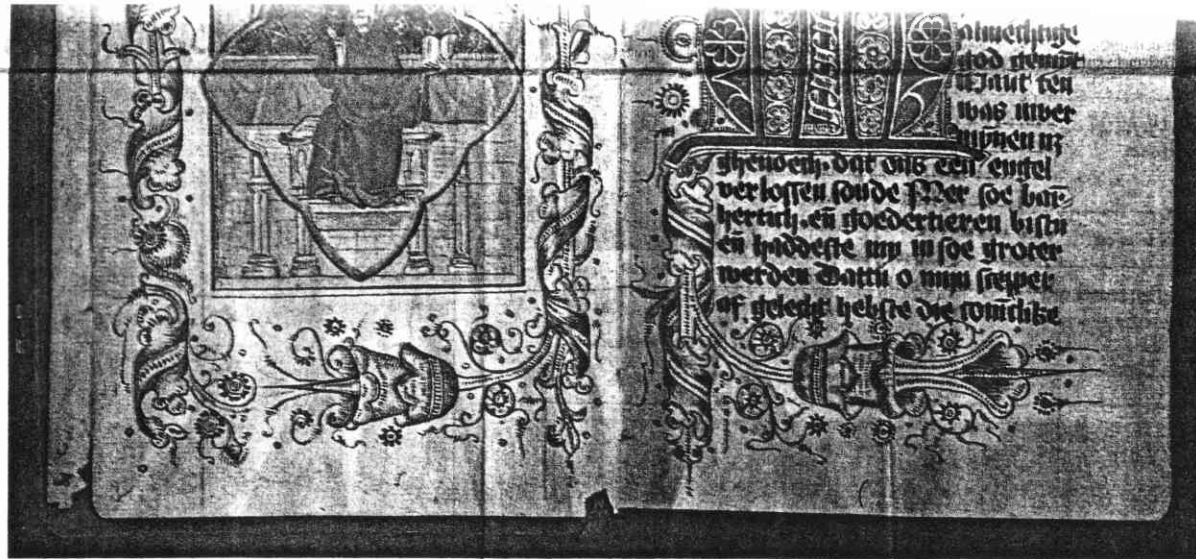 almechtige
god
Want ten
was nyver
ghenoech. dat ons een engel
verlossen soude Mer soe barm̄
hertich. en̄ goedertieren bistu
en̄ haddeste my in soe groter
werden Dattu o myn scepper
af gelecht hebste die